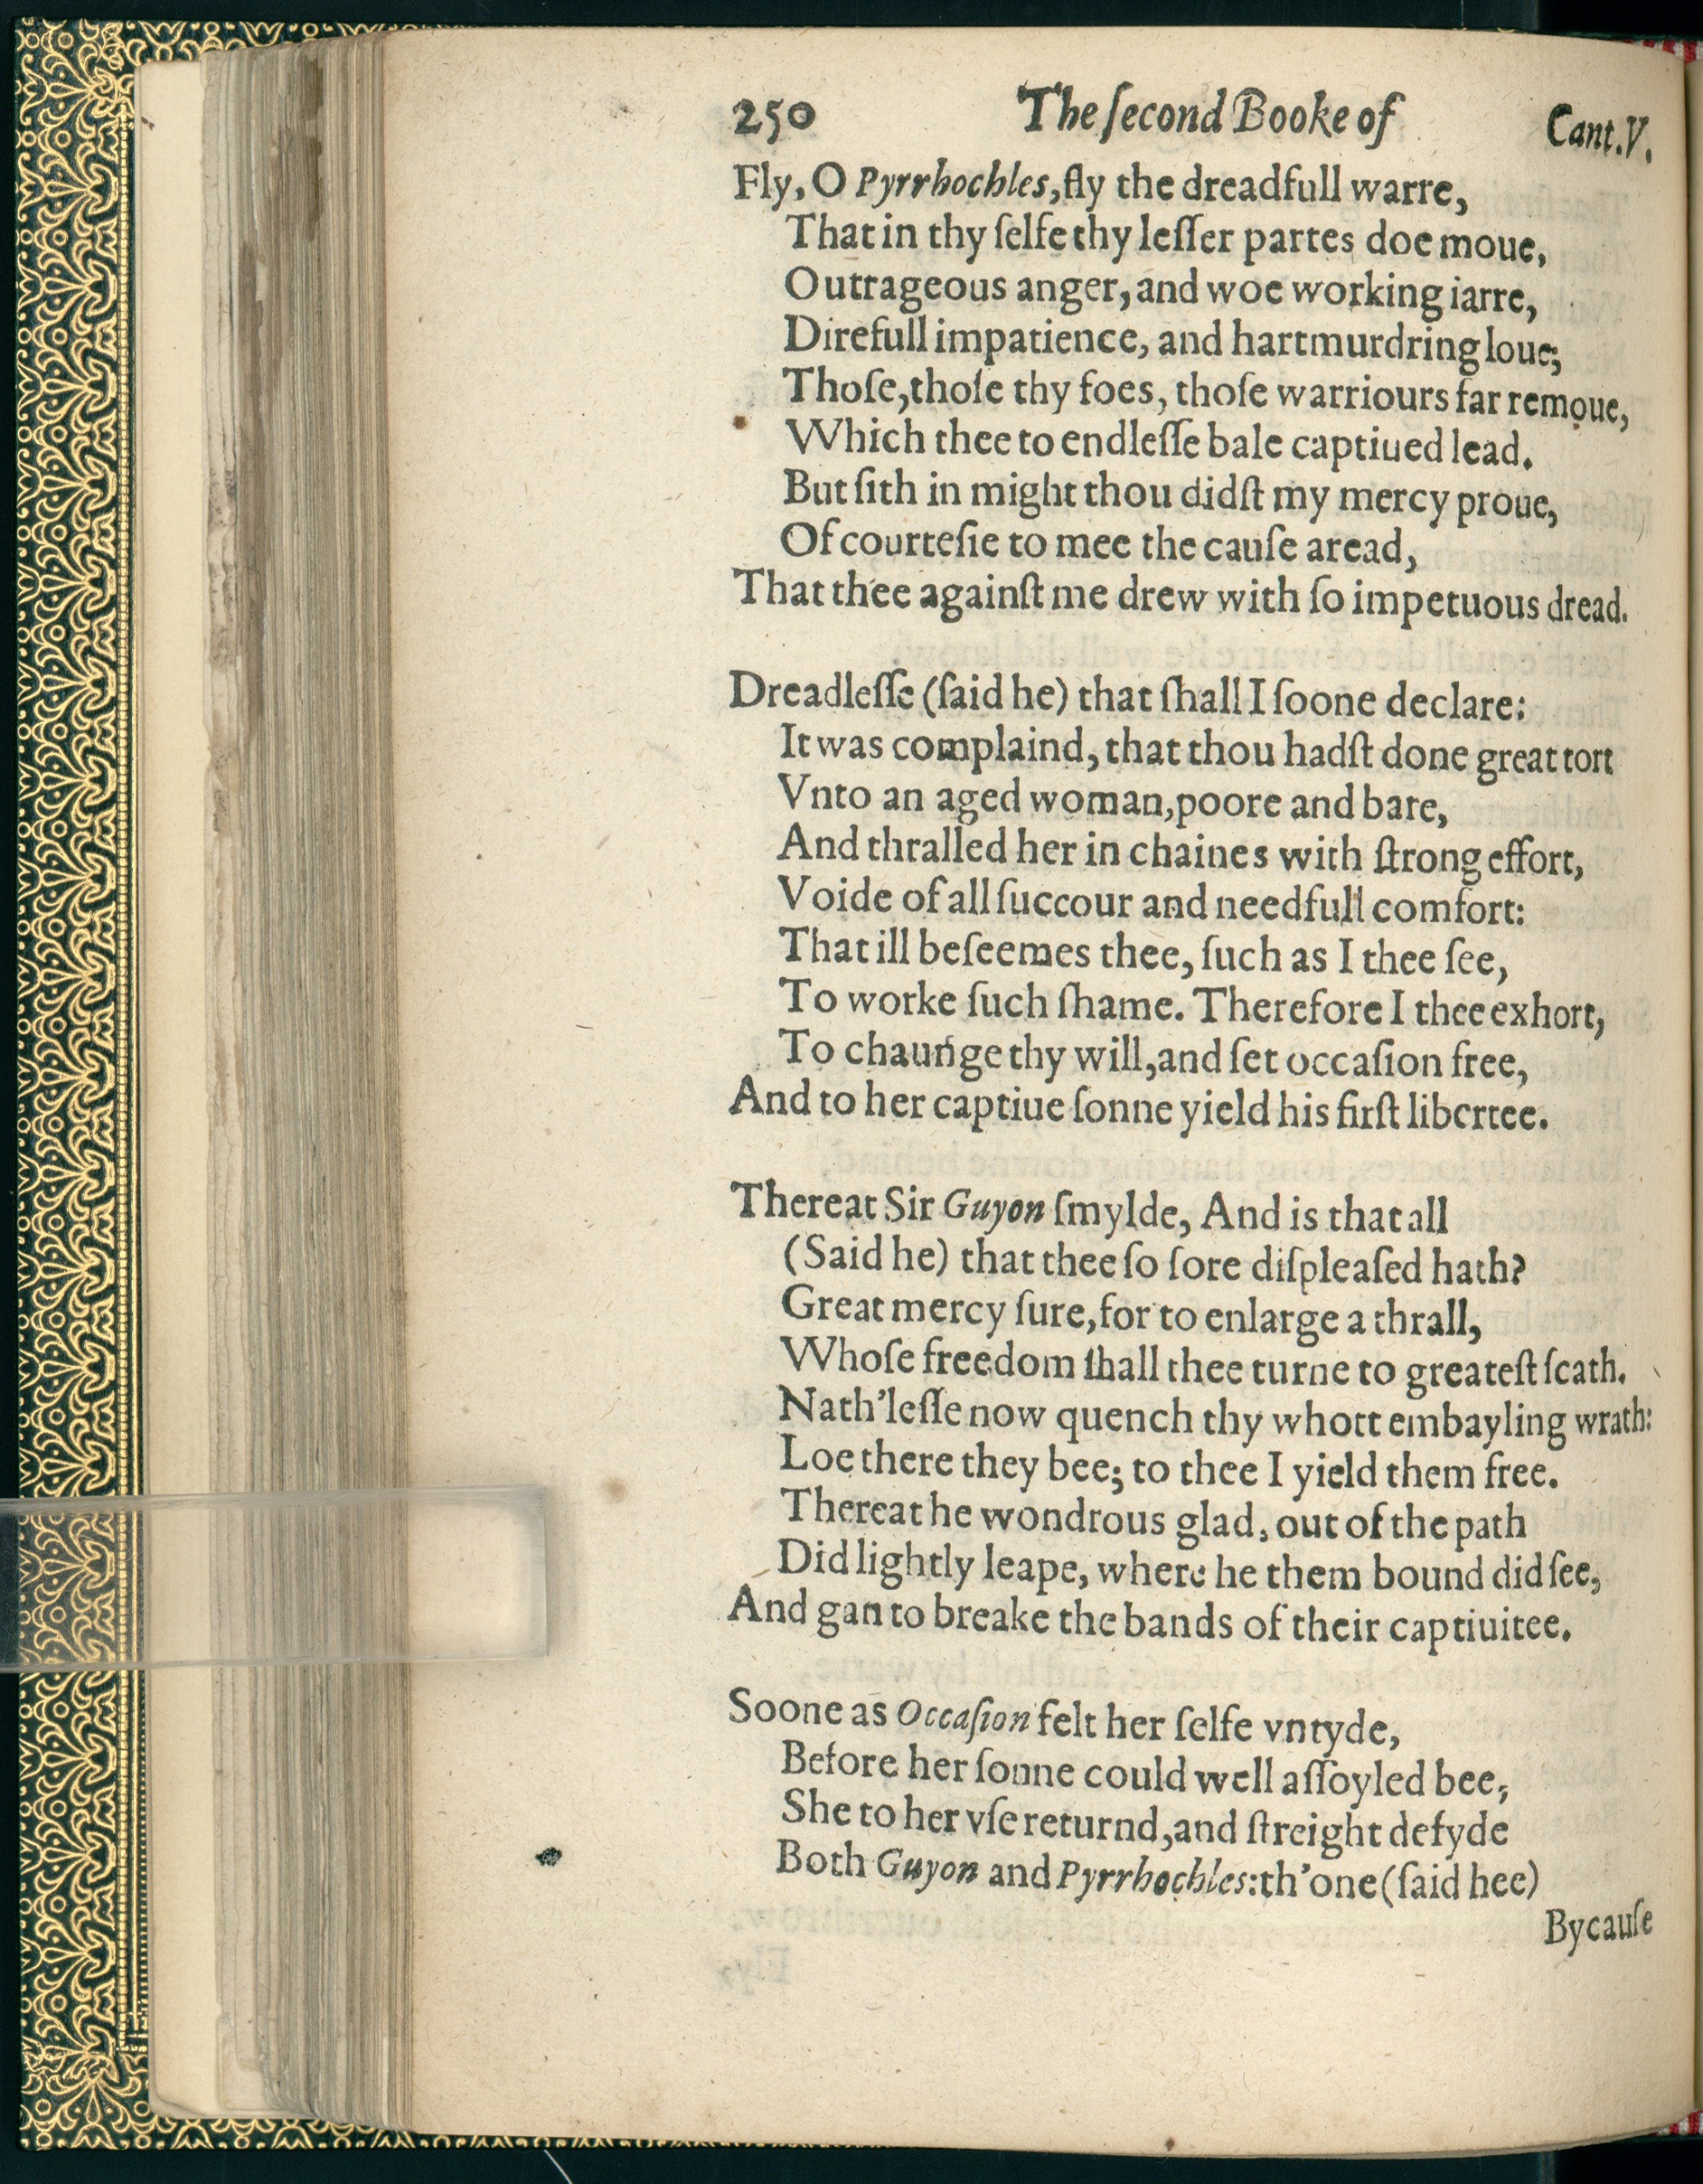 250 The ſecond Booke of Cant.V.
Fly, O Pyrrhochles, fly the dreadfull warre,
That in thy ſelfe thy leſſer partes doe moue,
Outrageous anger, and woe working iarre,
Direfull impatience, and hartmurdring loue;
Thoſe, thoſe thy foes, thoſe warriours far remoue,
Which thee to endleſſe bale captiued lead.
But ſith in might thou didſt my mercy proue,
Of courteſie to mee the cauſe aread,
That thee againſt me drew with ſo impetuous dread.
Dreadleſſe (ſaid he) that ſhall I ſoone declare:
It was complaind, that thou hadſt done great tort
Vnto an aged woman, poore and bare,
And thralled her in chaines with ſtrong effort,
Voide of all ſuccour and needfull comfort:
That ill beſeemes thee, ſuch as I thee ſee,
To worke ſuch ſhame. Therefore I thee exhort,
To chaunge thy will, and ſet occaſion free,
And to her captiue ſonne yield his firſt libertee.
Thereat Sir Guyon ſmylde, And is that all
(Said he) that thee ſo ſore diſpleaſed hath?
Great mercy ſure, for to enlarge a thrall,
Whoſe freedom ſhall thee turne to greateſt ſcath.
Nath'leſſe now quench thy whott embayling wrath:
Loe there they bee; to thee I yield them free.
Thereat he wondrous glad, out of the path
Did lightly leape, where he them bound did ſee,
And gan to breake the bands of their captiuitee.
Soone as Occaſion felt her ſelfe vntyde,
Before her ſonne could well aſſoyled bee,
She to her vſe returnd, and ſtreight defyde
Both Guyon and Pyrrhochles: th'one (ſaid hee)
Bycauſe